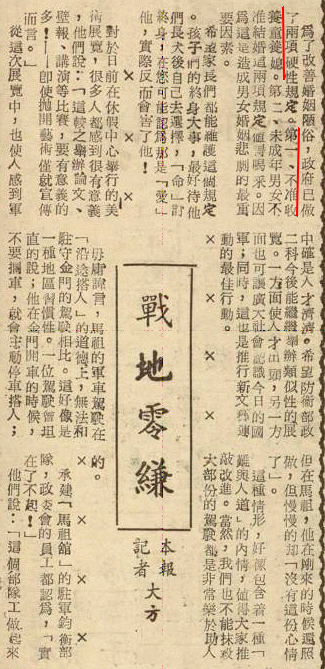 為了改善婚姻陋俗，政府已做
了兩項硬性規定。第一、不准收
養童養媳。第二、未成年男女不
准結婚這兩項規定值得喝釆。因
為這是造成男女婚姻悲劇的最重
要因素。
希望家長們都能維護這個規定
。孩子們的終身大事，最好待他
們長大後自己去選擇，「命」訂
終身，在您可能認為那是「愛」
他，實際反而會害了他！
× × × ×
對於日前在休假中心舉行的美
術展覽，很多人都感到很有意義
，他們說：「這較之舉辦論文、
壁報、講演等比賽，要有意義的
多！」—即使拋開藝術僅就宣傳
而言。」
從這次展覽中，也使人感到軍
中確是人才濟濟。希望防衛部政
二科今後能繼續舉辦類似性的展
覽。一方面使人才出頭，另一方
面也可讓廣大社會認識今日的國
軍；同時，這也是推行新文藝運
動的最佳行動。
× × × ×
戰地零縑
本報
記者 大方
毋庸諱言，馬祖的軍車駕駛在
「沿途搭人」的道德上，無法和
駐守金門的駕駛相比。這好像是
一種地區習慣性。一位駕駛曾坦
直的說；他在金門開車的時候，
不要攔車，就會主動停車搭人；
但在馬祖，他在剛來的時候還照
做，但慢慢的却「沒有這份心情
了」。
這種情形，好像包含着一種「
難與人道」的內情，值得大家推
敲改進。當然，我們也不能抹殺
大部份的駕駛都是非常樂於助人
的。
× × × ×
承建「馬祖館」的駐軍鈞衡部
隊，政委會的員工都認為，「實
在了不起！」
他們說：「這個部隊工做起來